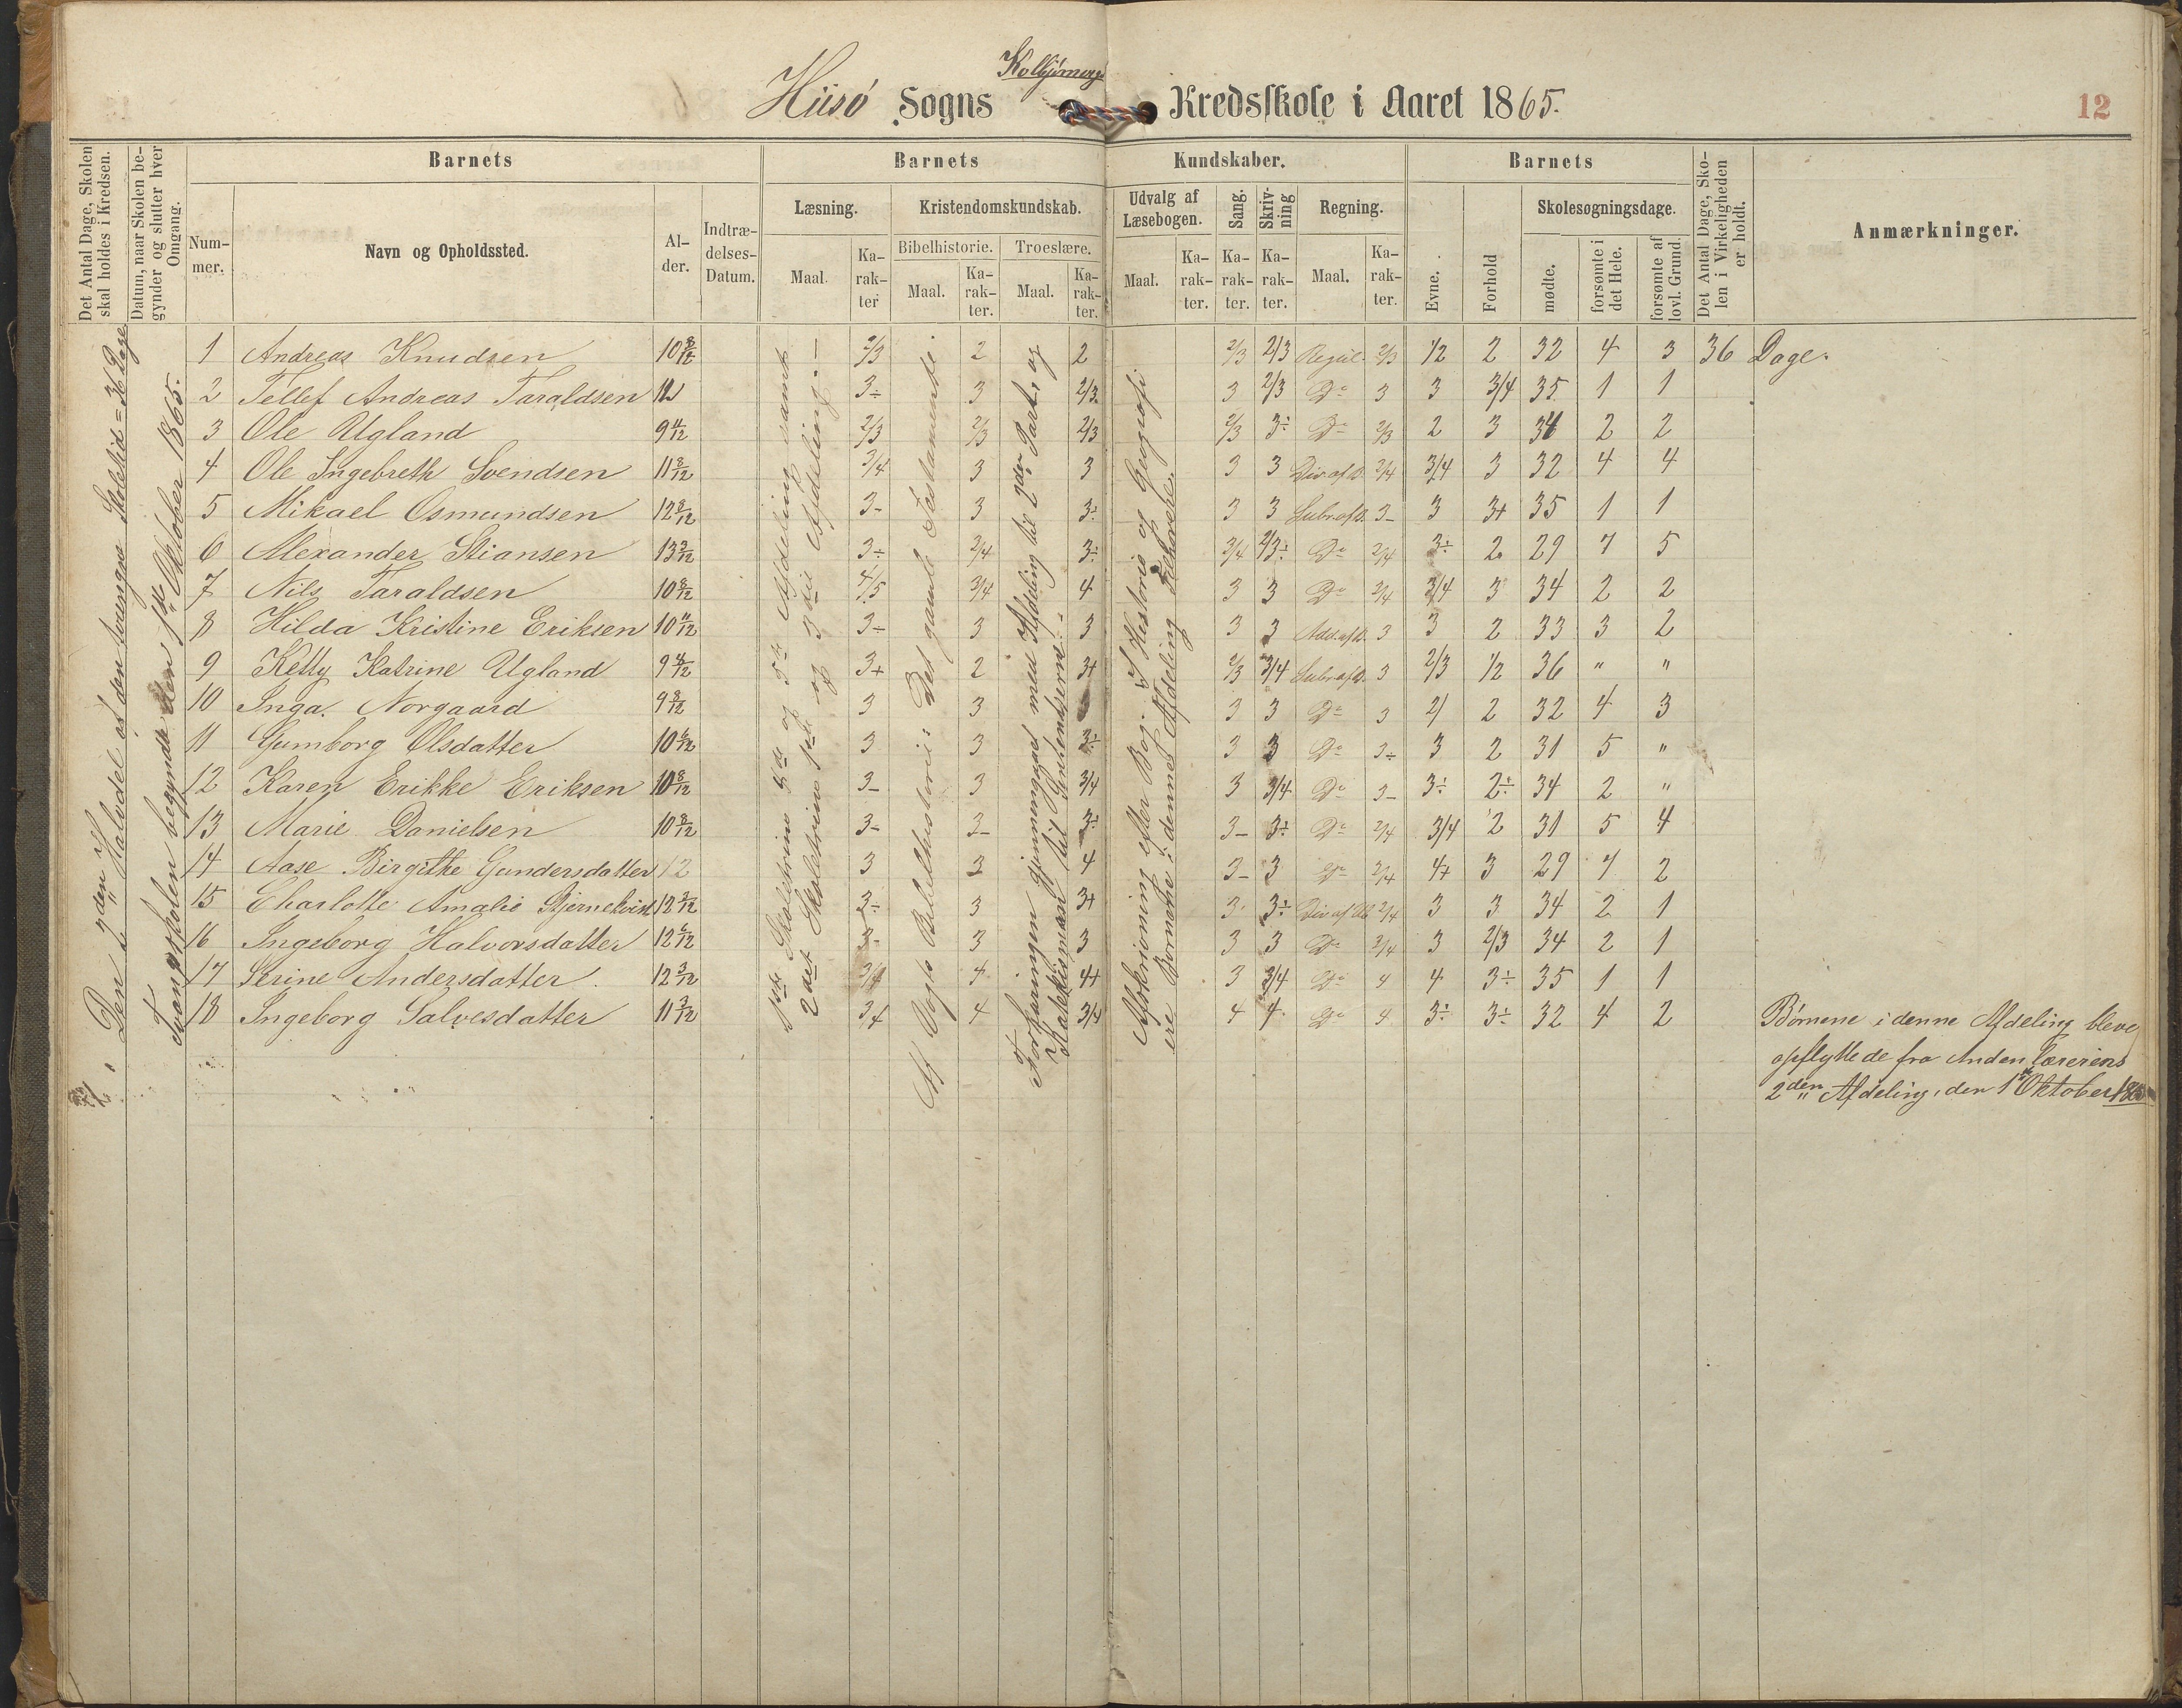 Kolbjörnsv
Hiisö Sogns Kredsskole i Aaret 1865.
12
Det Antal Dage, Skolen skal holdes i Kredsen.
Datum, naar Skolen begynder og slutter hver Omgang.
Barnets
Barnets
Kundskaber.
Barnets
Det Antal Dage, Skolen i Virkeligheden er holdt.
Anmærkninger.
Nummer.
Navn og Opholdssted.
Alder.
Indtrædelses-Datum.
Læsning.
Kristendomskundskab.
Udvalg af Læsebogen.
Sang.
Skrivning
Regning.
Evne.
Forhold
Skolesøgningsdage.
Bibelhistorie.
Troeslære.
mødte.
forsømte i det Hele.
forsømte af lovl. Grund.
Maal.
Karakter
Maal.
Karakter.
Maal.
Karakter.
Maal.
Karakter.
Karakter.
Karakter.
Maal.
Karakter.
Den 2den Halvdel af den tvungne Skoletid = 36 Dage
Tvangsskolen begyndte den 1ste Oktober 1865.
1ste Skoletrins 4de og 5te Afdeling samt
2det Skoletrins 1ste og 3die Afdeling.
Af Vogts Bibelhistorie: Det gamle Testamente.
Forklaringen gjennemgaaet med Afdeling til 2den Part, og
Katekismen til Sakramenterne.
Afskrivning efter Bog. I Historie og Geografi
ere Børnene i denne Afdeling Tilhørere.
1 Andreas Knudsen 10 8/12 2/3 2 2 2/3 2/3 Regul. 2/3 1/2 2 32 4 3 36 Dage.
2 Tellef Andreas Taraldsen 11 3÷ 3 2/3 3 2/3 Do 3 3 3/4 35 1 1
3 Ole Ugland 9 4/12 2/3 2/3 2/3 2/3 3÷ Do 2/3 2 3 34 2 2
4 Ole Ingebreth Svendsen 11 8/12 3/4 3 3 3 3 Div. af B. 3/4 3/4 3 32 4 4
5 Mikael Osmundsen 12 8/12 3- 3 3÷ 3 3 Subr. af B. 3- 3 3+ 35 1 1
6 Alexander Stiansen 13 3/12 3÷ 3/4 3÷ 3/4 2/3÷ Do 3/4 3÷ 2 29 7 5
7 Nils Taraldsen 10 8/12 4/5 3/4 4 3 3 Do 3/4 3/4 3 34 2 2
8 Hilda Kristine Eriksen 10 11/12 3÷ 3 3 3 3 Add. af B. 3 3 2 33 3 2
9 Ketty Katrine Ugland 9 4/12 3+ 2 3+ 2/3 3/4 Subr. af B. 3 2/3 1/2 36 " "
10 Inga Norgaard 9 8/12 3 3 3 3 Do 3 2/ 2 32 4 3
11 Gumborg Olsdatter 10 6/12 3 3 3÷ 3 3 Do 3÷ 3 2 31 5 "
12 Karen Erikke Eriksen 10 8/12 3- 3 3/4 3 3/4 Do 3- 3÷ 2÷ 34 2 "
13 Marie Danielsen 10 8/12 3- 3- 3÷ 3- 3÷ Do 3/4 3/4 2 31 5 4
14 Aase Birgitte Gundersdatter 12 3 3 4 3- 3 Do 3/4 4+ 3 29 7 2
15 Charlotte Amalie Stjernekvist 12 3/12 3÷ 3 3+ 3 3÷ Div af Ub 3/4 3 3 34 2 1
16 Ingeborg Halvorsdatter 12 6/12 3- 3 3 3 3 Do 3/4 3 2/3 34 2 1
17 Serine Andersdatter. 12 3/12 3/4 4 4+ 3 3/4 Do 4 4 3÷ 35 1 1
18 Ingeborg Salvesdatter 11 3/12 3/4 4 3/4 4 4 Do 4 3÷ 3÷ 32 4 2
Börnene i denne Afdeling bleve
opflyttede fra Andenlærerens
2den Afdeling, den 1ste Oktober 1865